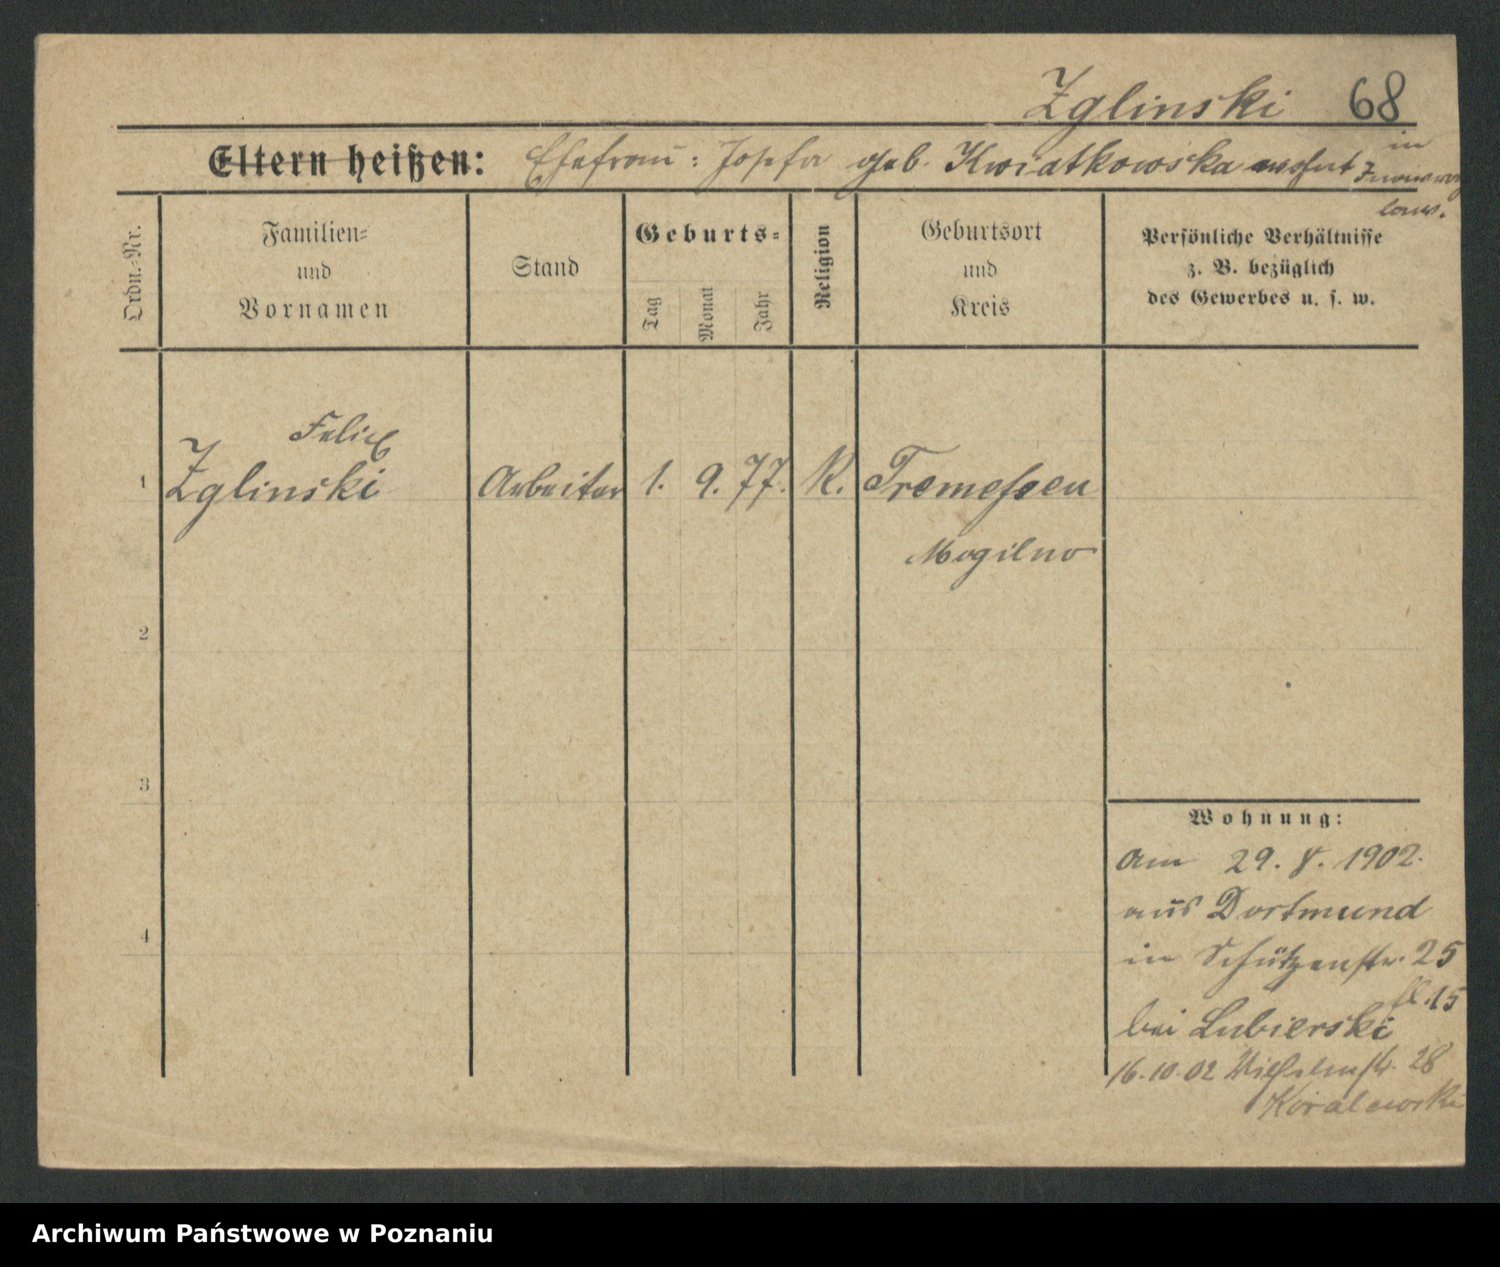 Zglinski 68
Eltern heißen: Ehefrau: Josefa geb. Kwiatkowska wohnt in Inowraz
law.
Ordn.-Nr.
Familien-
und
Vornamen
Stand
Geburts-
Tag
Monat
Jahr
Religion
Geburtsort
und
Kreis
Persönliche Verhältnisse
z. B. bezüglich
des Gewerbes u. s. w.
Felix
1 Zglinski Arbeiter 1. 9. 77. K. Tremessen
Mogilno
2
3
Wohnung:
am 29. 8. 1902.
aus Dortmund
4
in Schützenstr. 25
fl. 15
bei Lubierski
16.10.02 Wilhelmstr. 28
Koralewski
Archiwum Państwowe w Poznaniu